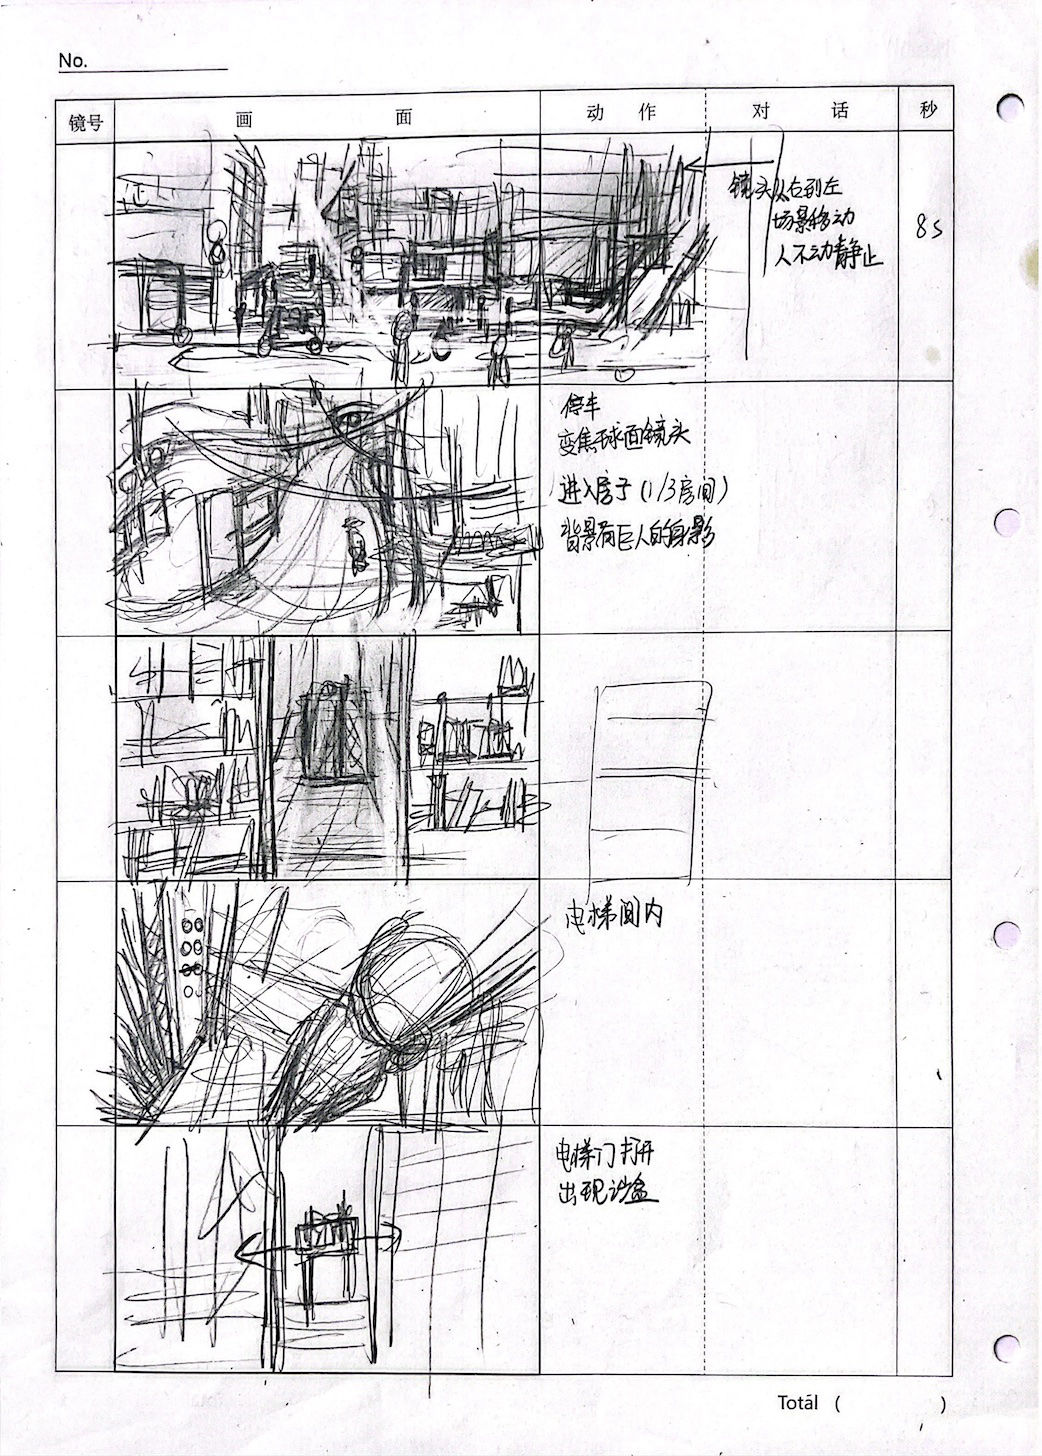 No.
镜号 画 面 动 作 对 话 秒
镜头从右到左
场景移动
人不动静止
8s
停车
变焦球面镜头
进入房子(1/3房间)
背景有巨人的身影
电梯间内
电梯门打开
出现沙盒
Total ( )